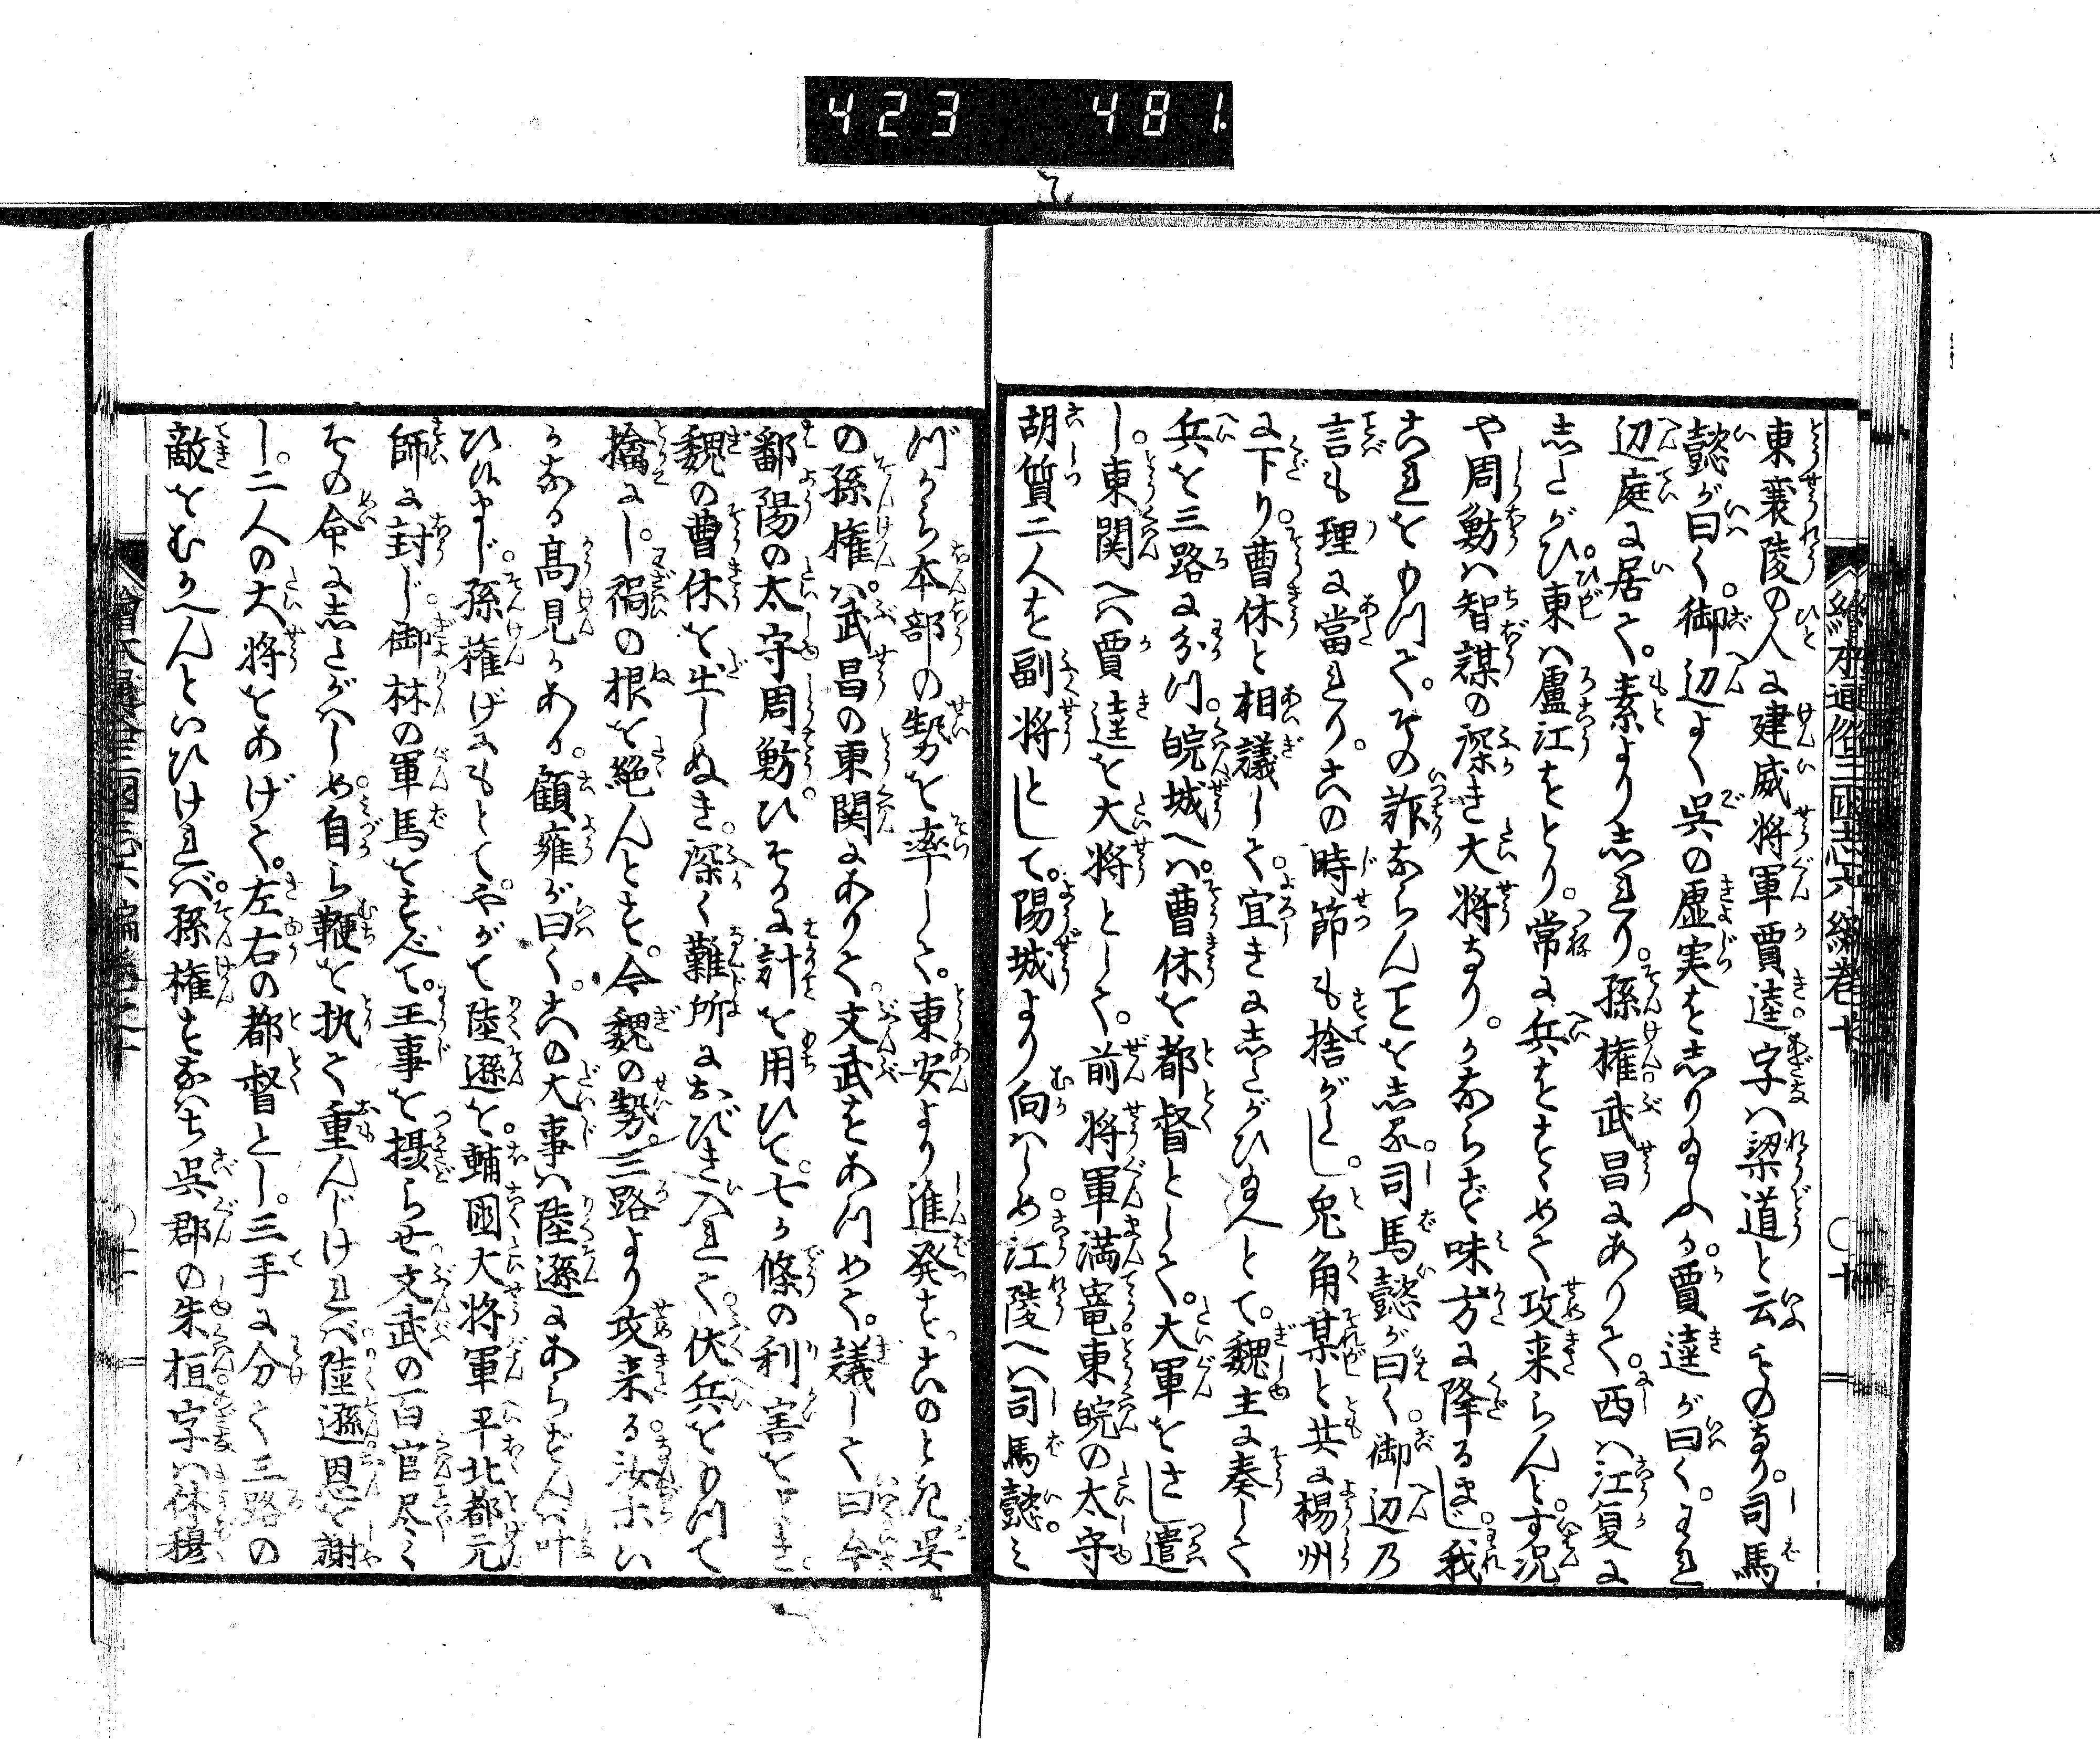 423 481.
繪本通俗三國志六編卷十 〇十
東襄陵の人に建威将軍賈逵字ハ梁道と云ものあり。司馬
懿が曰く。御辺よく呉の虚実を志り給ふか。賈逵が曰く。われ
辺庭に居て。素より志れり。孫権武昌にありて。西ハ江夏に
志たがひ。東ハ廬江をとり。常に兵をすゝめて攻来らんとす。況
や周魴ハ智謀の深き大将なり。かならず味方に降るまじ。我
これをもつて。その詐ならんことを志る。司馬懿が曰く。御辺乃
言も理に當れり。この時節も捨がたし。兎角某と共に楊州
に下り。曹休と相議して。宜きに志たがひ給へとて。魏主に奏して
兵を三路に分つ。皖城へハ。曹休を都督として。大軍をさし遣
し。東関へハ賈逵を大将として。前将軍満寵東皖の太守
胡質二人を副将として。陽城より向ハしめ。江陵へハ司馬懿。み
づから本部の勢を率して。東安より進発す。このとき呉
の孫権ハ。武昌の東関にありて。文武をあつめて。議して曰今
鄱陽の太守周魴。ひそかに計を用ひて。七か條の利害をとき
魏の曹休を出しぬき。深く難所におびき入れて。伏兵をもつて
擒にし。禍の根を絶んとす。今魏の勢。三路より攻来る。汝等い
かなる高見かある。顧雍が曰く。この大事ハ陸遜にあらずんバ叶
ひ候まじ。孫権げにもとて。やがて陸遜を。輔國大将軍平北都元
師に封じ。御林の軍馬をすべて。王事を摂らせ。文武の百官尽く
その命に志たがハしめ。自ら鞭を執て重んじけれバ。陸遜恩を謝
し。二人の大将をあげて。左右の都督とし。三手に分て三路の
敵をむかへんといひけれバ。孫権すなハち呉郡の朱桓字ハ休穆